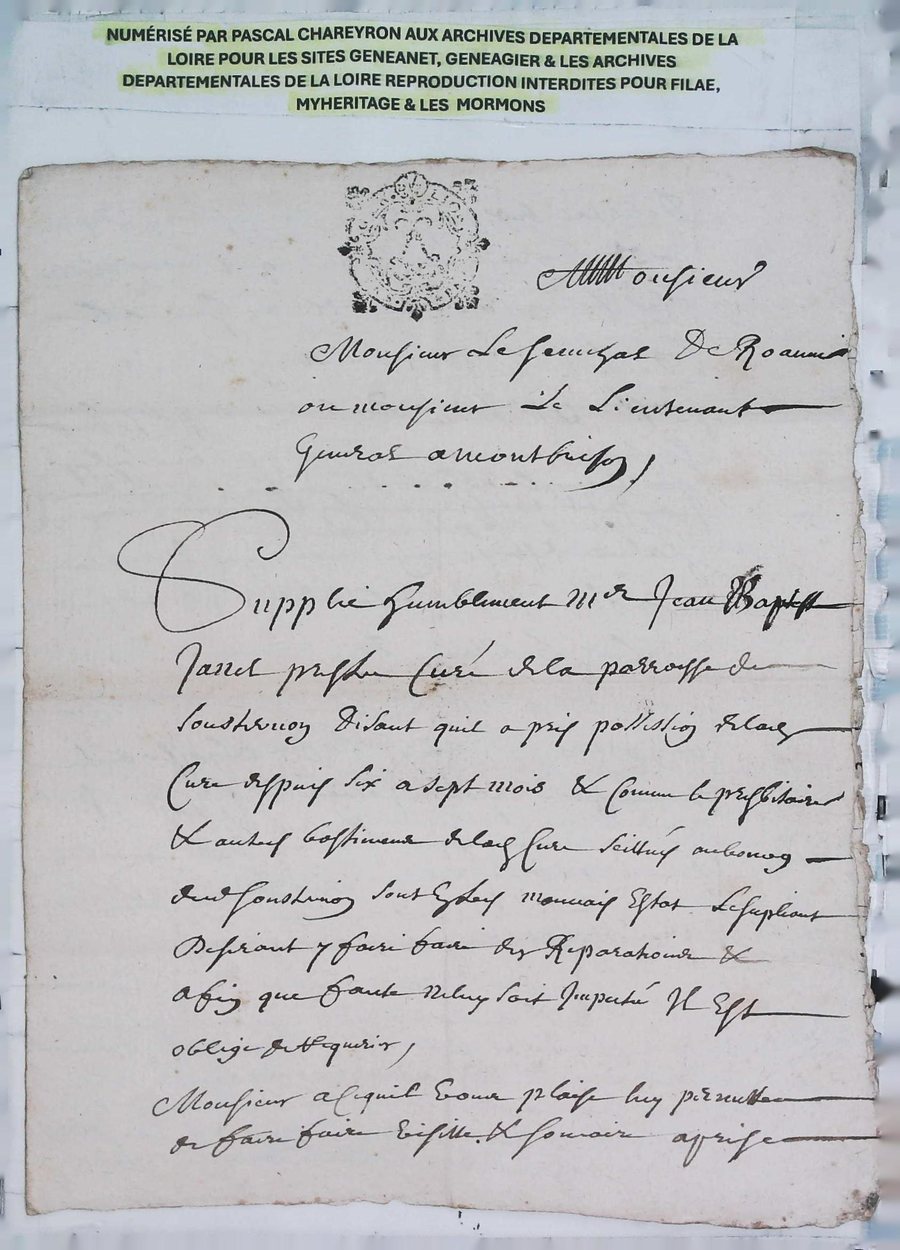 NUMÉRISÉ PAR PASCAL CHAREYRON AUX ARCHIVES DEPARTEMENTALES DE LA
LOIRE POUR LES SITES GENEANET, GENEAGIER & LES ARCHIVES
DEPARTEMENTALES DE LA LOIRE REPRODUCTION INTERDITES POUR FILAE,
MYHERITAGE & LES MORMONS
Monsieur
Monsieur Le senechal De Roannois
ou monsieur Le Lieutenant
General a montbrison,
Supplie humblement mre Jean Baptiste
prestre Curé de la parroisse de
Sousternon Disant quil a pris possession de lad
Cure despuis six a sept mois & comme le presbitaire
& autres bastiments de lad Cure scittués au bourg
dud Sousternon sont en tres mauvais Estat Le supliant
Desirant y faire faire des Reparations &
afin que faute ne luy soit Imputé Il Est
obligé de Requerir,
Monsieur a ce quil vous plaise luy permettre
de faire faire visitte & sommaire aprise